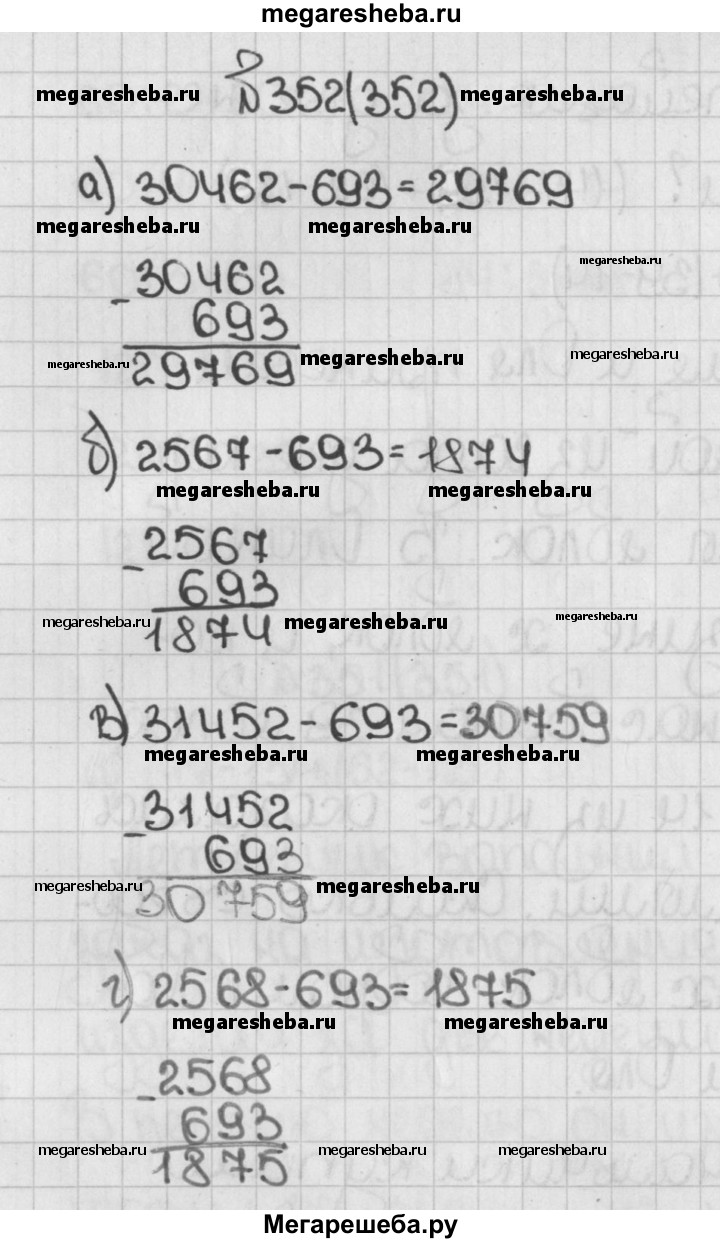 megaresheba.ru
megaresheba.ru №352(352) megaresheba.ru
а) 30462-693=29769
megaresheba.ru megaresheba.ru
megaresheba.ru
30462
-
693
megaresheba.ru 29769 megaresheba.ru megaresheba.ru
б) 2567-693=1874
megaresheba.ru megaresheba.ru
2567
-
693
megaresheba.ru 1874 megaresheba.ru megaresheba.ru
в) 31452-693=30759
megaresheba.ru megaresheba.ru
31452
-
693
megaresheba.ru 30759 megaresheba.ru
г) 2568-693=1875
megaresheba.ru megaresheba.ru
2568
-
693
megaresheba.ru 1875 megaresheba.ru megaresheba.ru
Мегарешеба.ру